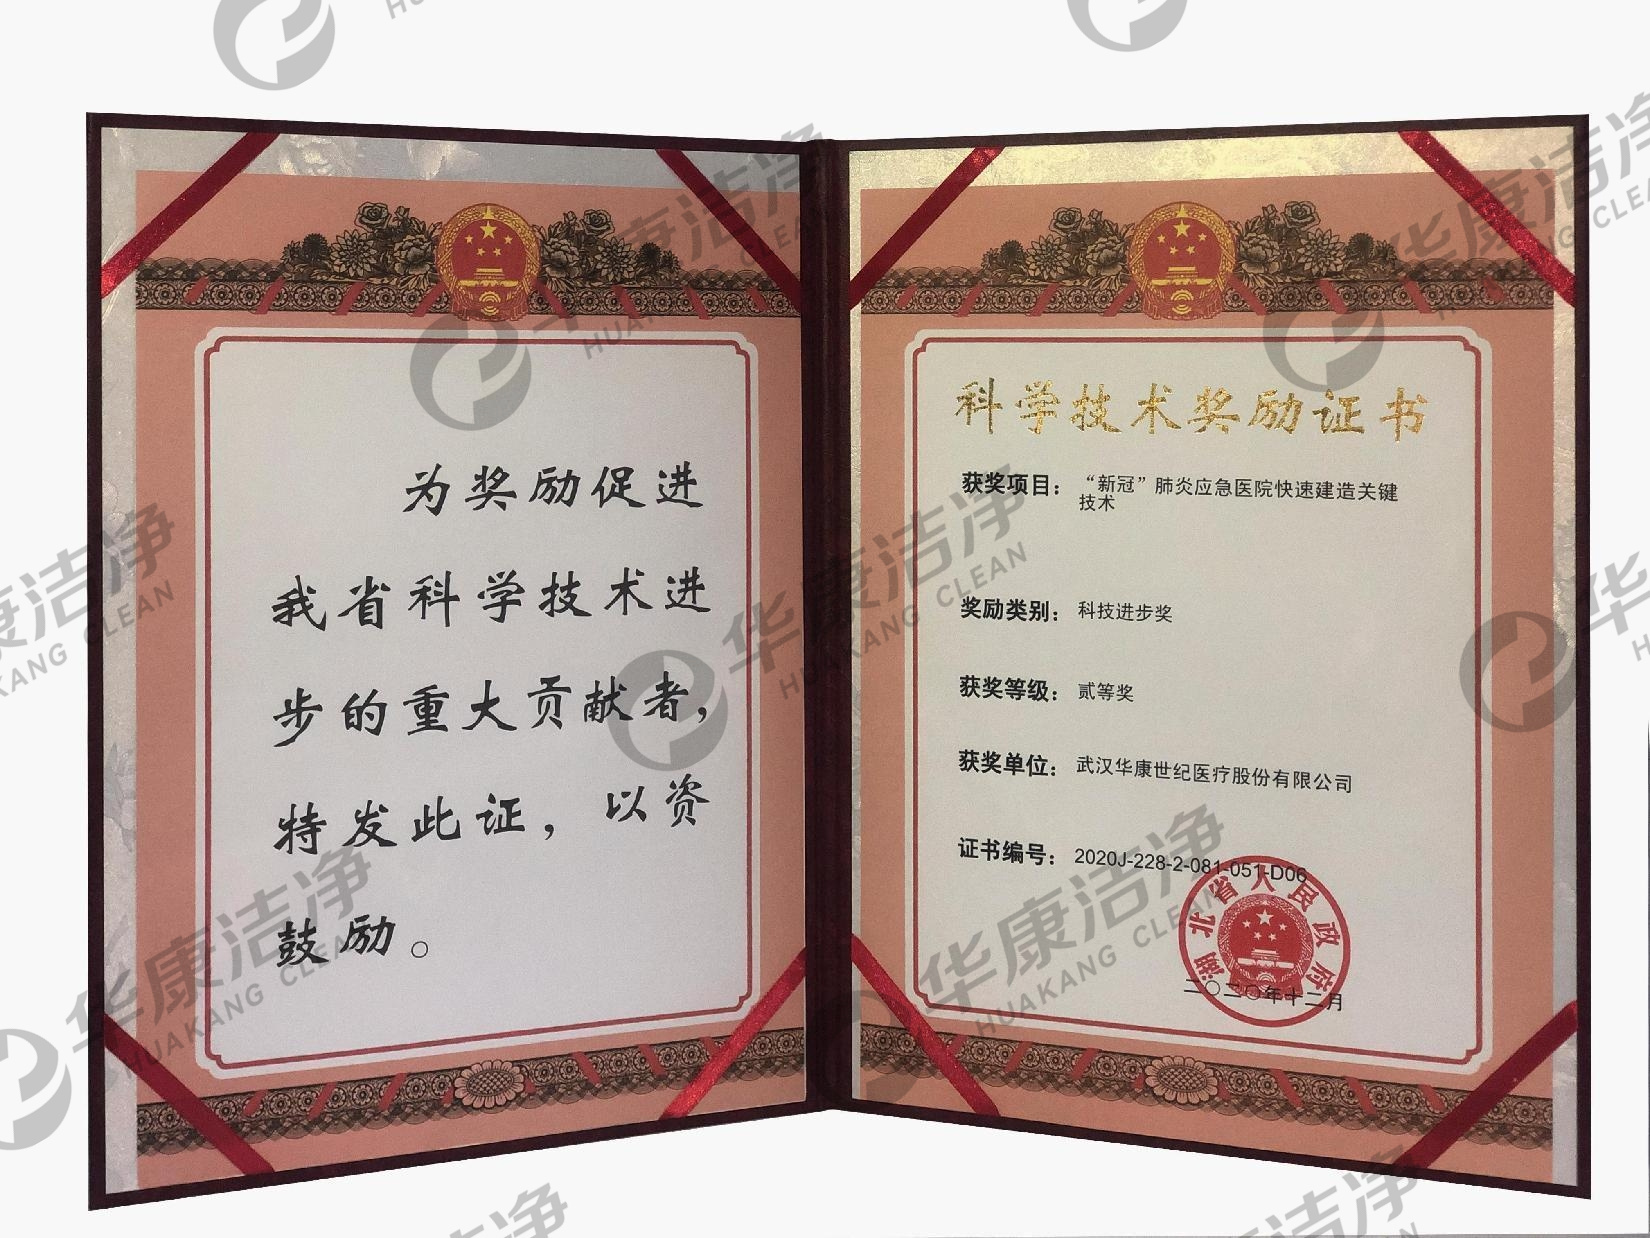 为奖励促进
我省科学技术进
步的重大贡献者，
特发此证，以资
鼓励。
科学技术奖励证书
获奖项目：“新冠”肺炎应急医院快速建造关键
技术
奖励类别：科技进步奖
获奖等级：贰等奖
获奖单位：武汉华康世纪医疗股份有限公司
证书编号：2020J-228-2-081-051-D06
湖北省人民政府
二〇二〇年十二月
华康洁净
HUAKANG CLEAN